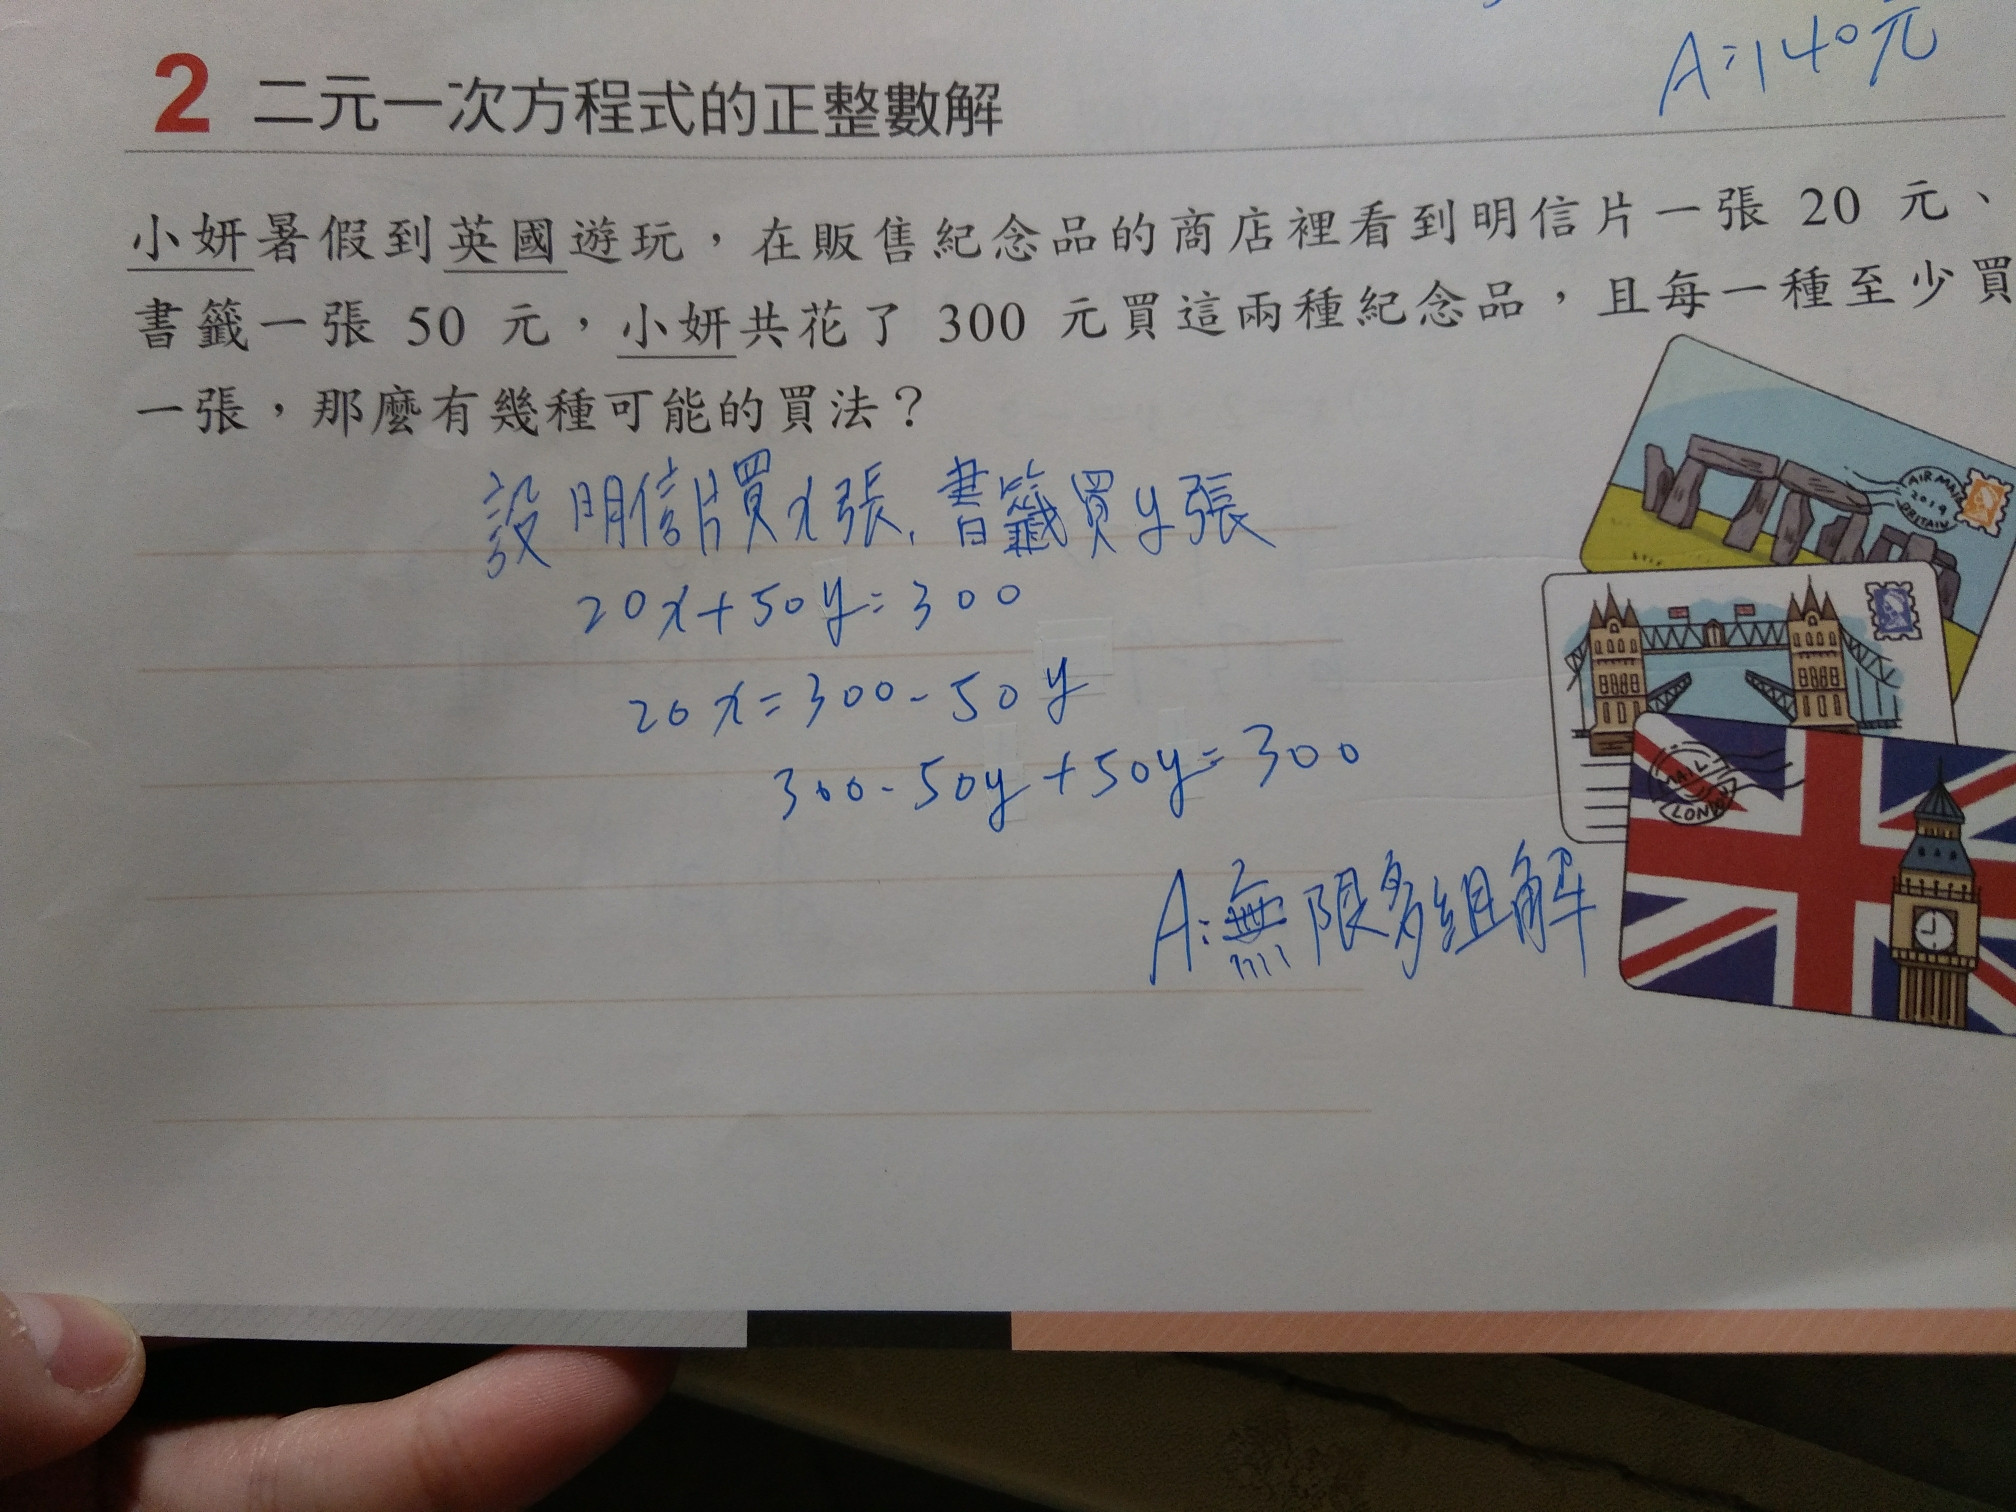 A:140元
2 二元一次方程式的正整數解
小妍暑假到英國遊玩，在販售紀念品的商店裡看到明信片一張 20 元、
書籤一張 50 元，小妍共花了 300 元買這兩種紀念品，且每一種至少買
一張，那麼有幾種可能的買法？
設明信片買x張,書籤買y張
20x+50y=300
20x=300-50y
300-50y+50y=300
A:無限多組解
AIR MAIL
2019
BRITAIN
MAIL
LONDON